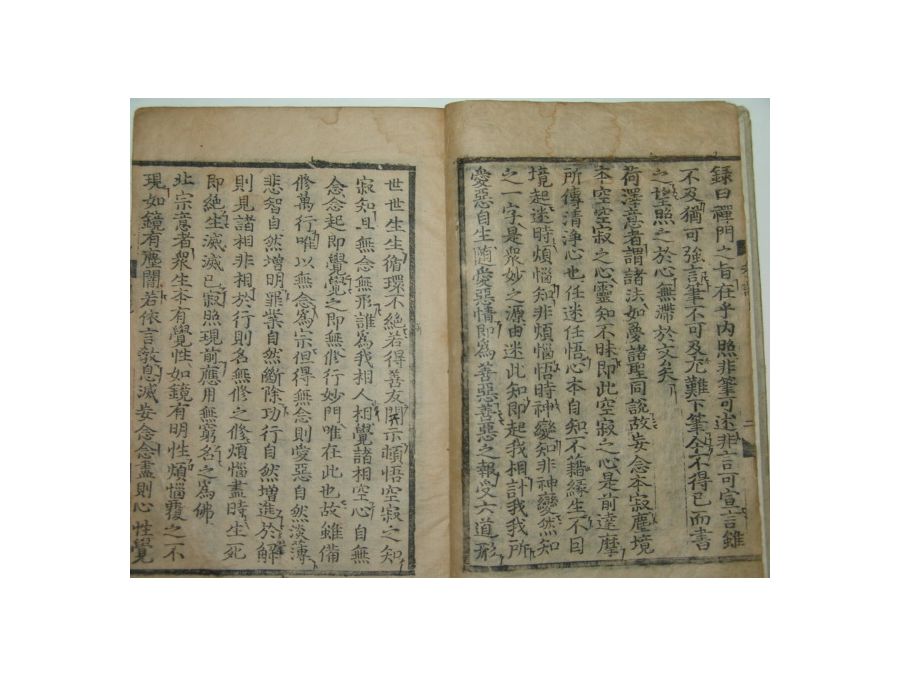 録曰禪門之旨在乎內照非筆可述非言可宣言雖
不及猶可強言筆不可及尤難下筆今不得已而書
之望照之於心無滯於文矣
荷澤意者謂諸法如夢諸聖同說故妄念本寂塵境
本空空寂之心靈知不昧即此空寂之心是前達摩
所傳清淨心也任迷任悟心本自知不藉緣生不因
境起迷時煩惱知非煩惱悟時神變知非神變然知
之一字是衆妙之源由迷此知即起我相計我我所
愛惡自生隨愛惡情即爲善惡善惡之報受六道形
世世生生循環不絶若得善友開示頓悟空寂之知
寂知且無念無形誰爲我相人相覺諸相空心自無
念念起即覺覺之即無修行妙門唯在此也故雖備
修萬行唯以無念爲宗但得無念則愛惡自然淡薄
悲智自然增明罪業自然斷除功行自然增進於解
則見諸相非相於行則名無修之修煩惱盡時生死
即絶生滅滅已寂照現前應用無窮名之爲佛
北宗意者衆生本有覺性如鏡有明性煩惱覆之不
現如鏡有塵闇若依言教息滅妄念念盡則心性覺